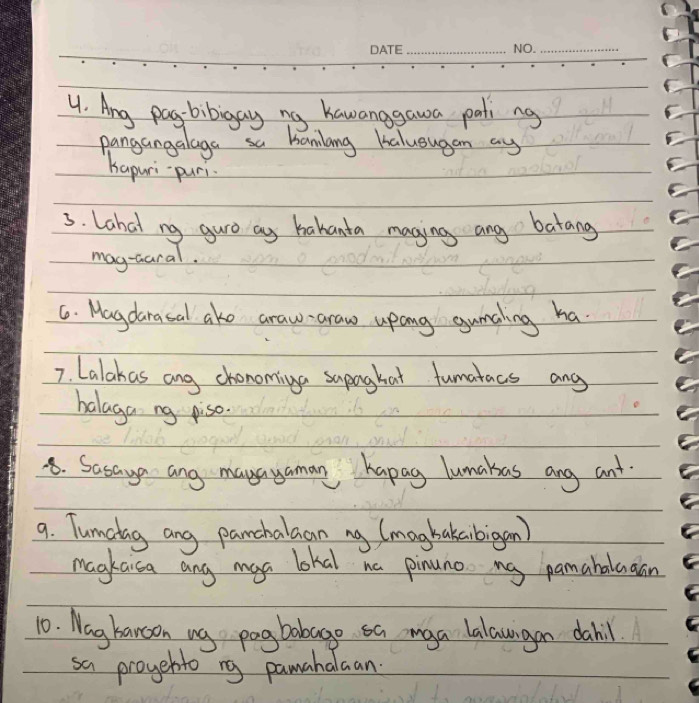 DATE NO.
4. Ang pag-bibigay ng kawanggawa pati ng
pangangalaga sa kanilang kalusugan ay
kapuri-puri.
3. Lahat ng guro ay kakanta maging ang batang
mag-aaral.
6. Magdarasal ako araw-araw upang gumaling ka.
7. Lalakas ang ekonomiya sapagkat tumataas ang
halaga ng piso.
8. Sasaya ang mayayaman kapag lumakas ang ant.
9. Tumatag ang pamahalaan ng (magkakaibigan)
magkaisa ang mga lokal na pinuno ng pamahalaan
10. Nagkaroon ng pagbabago sa mga lalawigan dahil
sa proyekto ng pamahalaan.